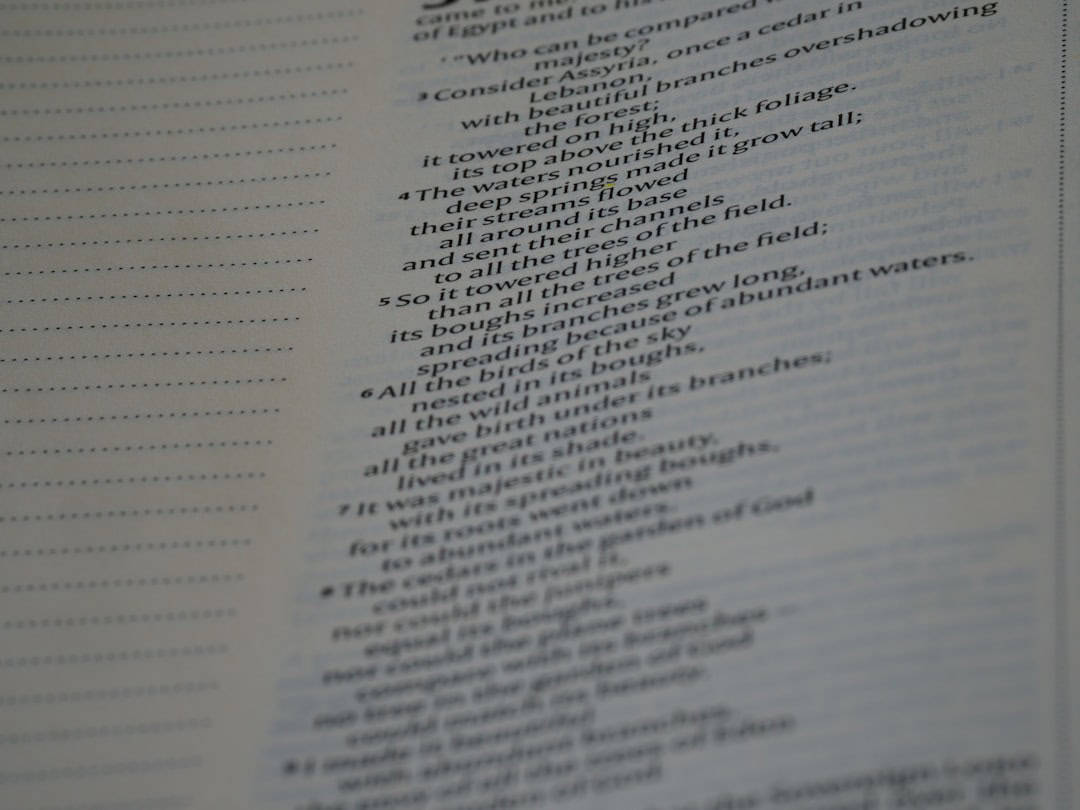 came to me:
of Egypt and to his
"Who can be compared
majesty?
3 Consider Assyria, once a cedar in
Lebanon,
with beautiful branches overshadowing
the forest;
it towered on high,
its top above the thick foliage.
4 The waters nourished it,
deep springs made it grow tall;
their streams flowed
all around its base
and sent their channels
to all the trees of the field.
5 So it towered higher
than all the trees of the field;
its boughs increased
and its branches grew long,
spreading because of abundant waters.
6 All the birds of the sky
nested in its boughs,
all the wild animals
gave birth under its branches;
all the great nations
lived in its shade.
7 It was majestic in beauty,
with its spreading boughs,
for its roots went down
to abundant waters.
8 The cedars in the garden of God
could not rival it,
nor could the junipers
equal its boughs,
nor could the plane trees
compare with its branches—
no tree in the garden of God
could match its beauty.
9 I made it beautiful
with abundant branches,
the envy of all the trees of Eden